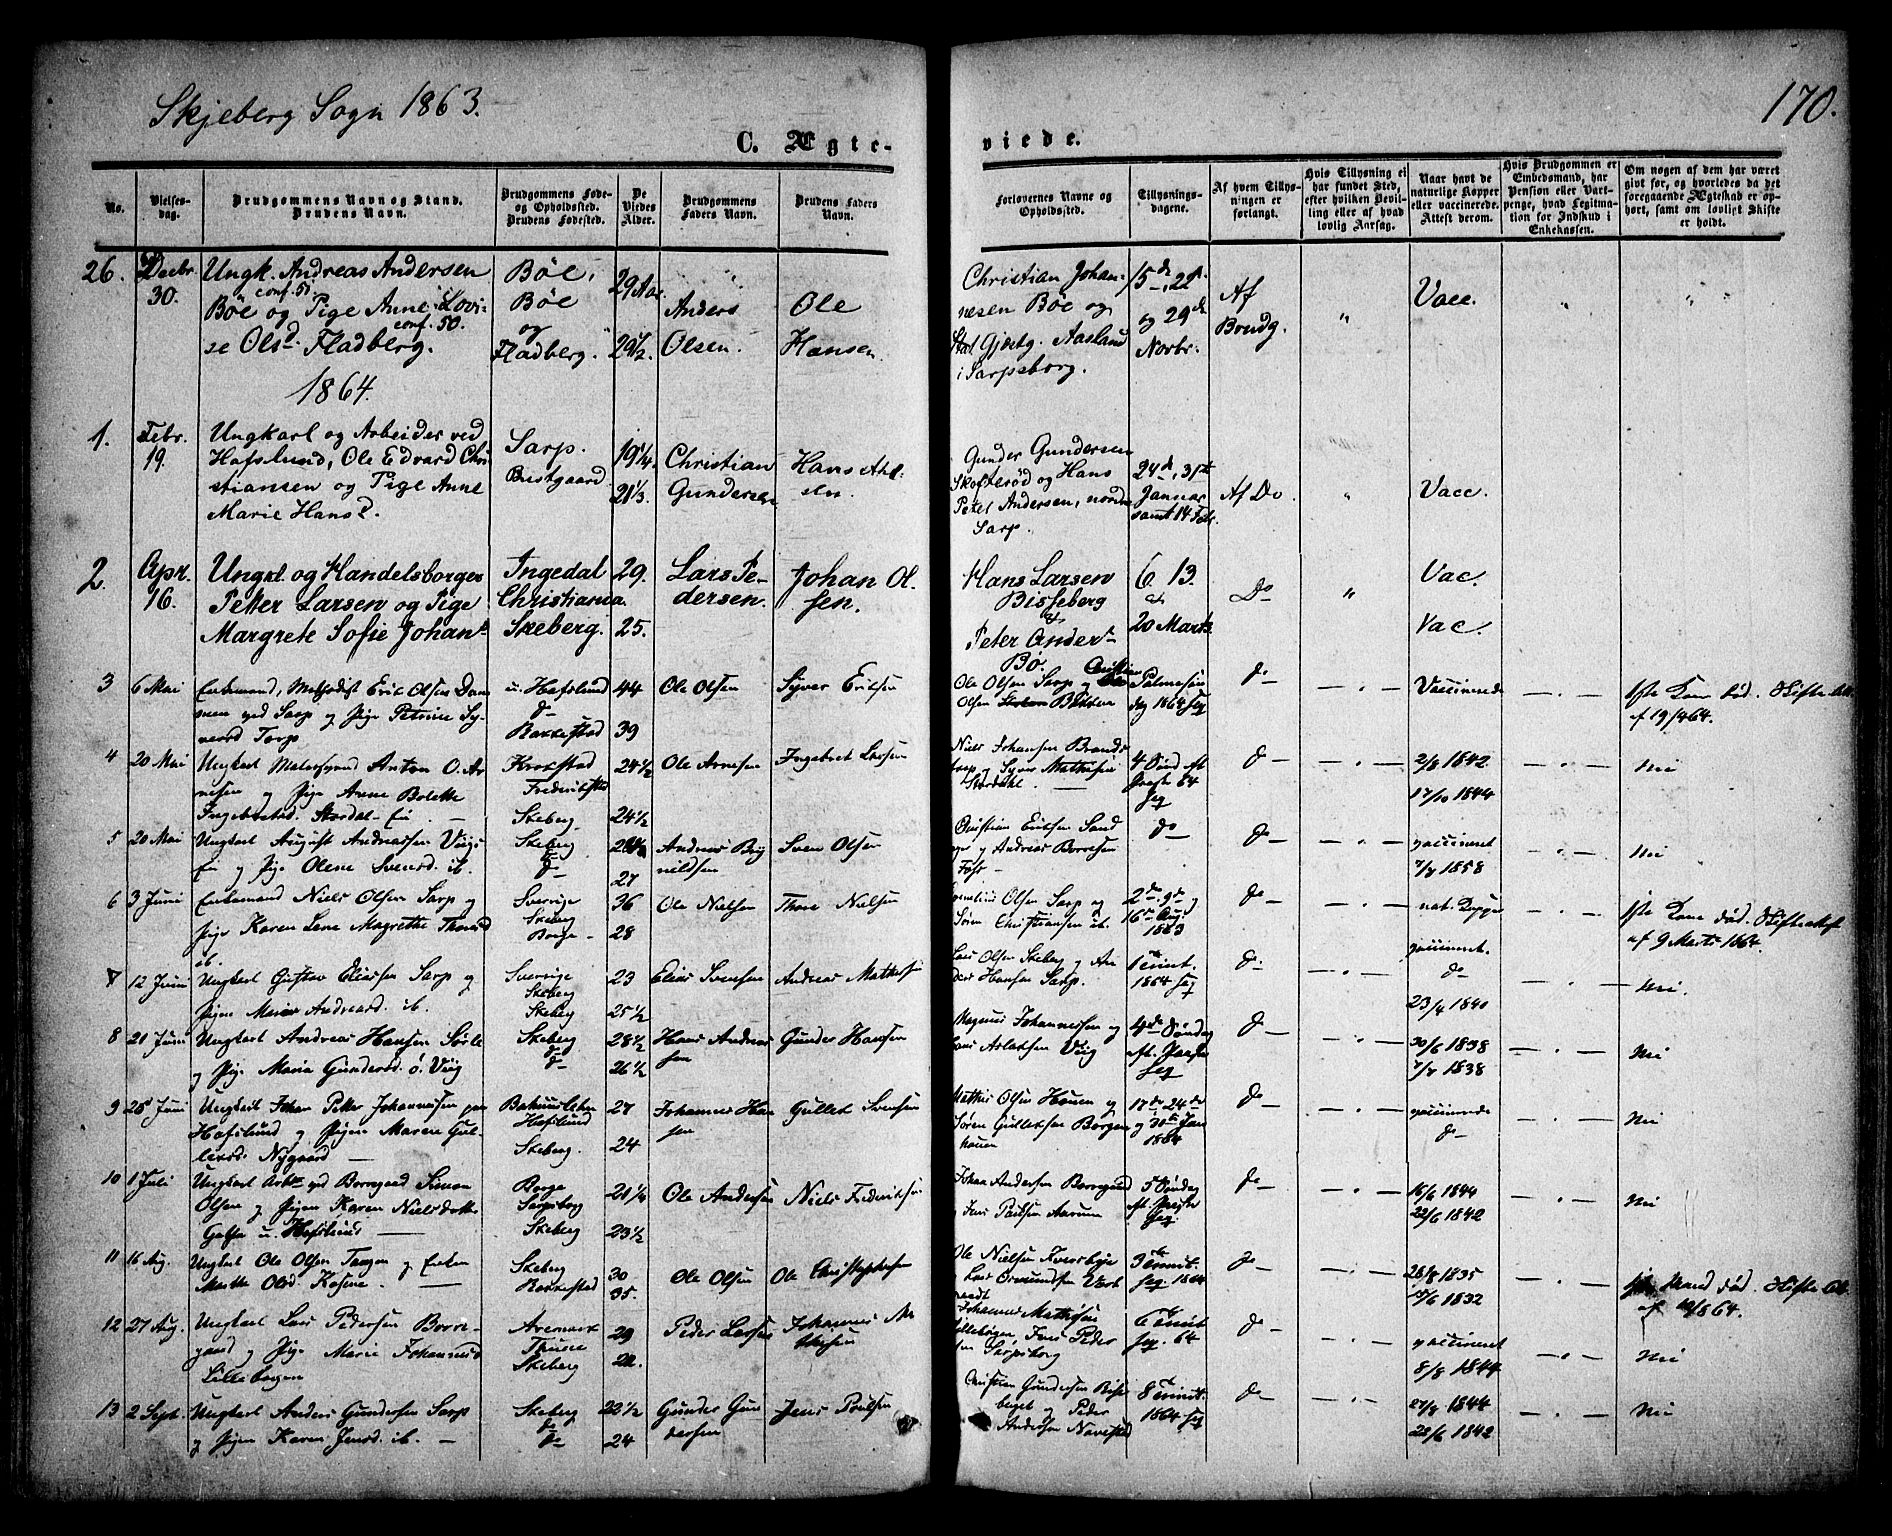 Skjeberg Sogn 1863.
170.
C. Ægte-
viede.
No.
Vielses-
dag.
Brudgommens Navn og Stand.
Brudens Navn.
Brudgommens Føde-
og Opholdssted.
Brudens Fødested.
De
Viedes
Alder.
Brudgommens
Faders Navn.
Brudens Faders
Navn.
Forlovernes Navne og
Opholdssted.
Tillysnings-
dagene.
Af hvem Tillys-
ningen er
forlangt.
Hvis Tillysning ei
har fundet Sted,
efter hvilken Bevil-
ling eller af hvad
lovlig Aarsag.
Naar havt de
naturlige Kopper
eller vaccinerede.
Attest derom.
Hvis Brudgommen er
Embedsmand, har
Pension eller Vart-
penge, hvad Legitima-
tion for Indskud i
Enkekassen.
Om nogen af dem har været
gift før, og hvorledes da det
foregaaende Ægteskab er op-
hørt, samt om lovligt Skifte
er holdt.
26.
Decbr.
30.
Ungk. Andreas Andersen
conf. 51.
Bøe og Pige Anne Lovi-
conf. 50.
se Olsd. Fladberg.
Bøe,
Bøe
og
Fladberg.
29 Aar
29 1/2
Anders
Olsen.
Ole
Hansen.
Christian Johan-
nesen Bøe og
Gjørtg. Aaslund
i Sarpsborg.
15de, 22de
og 29de
Novbr.
Af
Brudg.
"
Vacc.
" "
1864.
1.
Febr.
19.
Ungkarl og Arbeider ved
Hafslund, Ole Edvard Chri
stiansen og Pige Anne
Marie Hansd.
Sarp.
Bustgaard
19 1/4
21 1/3
Christian
Gundersen
Hans
Gunder Gundersen
Skofterød og Hans
Peter Andersen, nordre
Sarp.
24de, 31te
Januar
samt 14 Febr.
Af Do.
"
Vacc.
2.
Apr.
16.
Ungkl. og Handelsborger
Petter Larsen og Pige
Margrete Sofie Johansd.
Ingedal
Christiania.
Skeberg.
29.
25.
Lars Pe-
dersen.
Johan Ol-
sen.
Hans Larsen
Bisseberg
&
Peter Anders.
Bø.
6. 13.
&
20 Marts
Do
"
Vac.
Vac.
3
6 Mai
Enkemand, Methodist Erik Olsen Dam
men ved Sarp og Pige Petrine Sy-
versd Torp
u. Hafslund
do
Rakkestad
44
39
Ole Olsen
Syver Eriksen
Ole Olsen Sarp og Christian
Olsen
Palmesøn
dag 1864 seq
do
— " —
Vaccinerede
— " —
1ste Kone død. Skifte Att.
af 19/4 64.
4
20 Mai
Ungkarl Anton O. Ar
nesen og Pige Anne Bolette
Ingebretsd.
Krokstad
Fredrikstad
Skeberg
24 1/2
24 1/2
Ole Arnesen
Ingebret Larsen
Niels Johansen Brands
torp og Syver Mathisen
4 Sønd. ft
Paaske 64
seq
do
— " —
2/8 1842
17/10 1844
— " —
Nei
5
20 Mai
Ungkarl August Andreassen Viig-
en og Pige Olene Svensd. ib.
Skeberg
do
27
Andreas Bry
nildsen
Sven Olsen
Christian Eriksen Sand
og Andreas Borresen
Foss —
do
do
— " —
vaccineret
7/7 1858
— " —
Nei
6
3 Juni
Enkemand Niels Olsen Sarp og
Pige Karen Lene Magrethe Thoresd
ib.
Sverrige
Skeberg
Borge —
36
28
Ole Nielsen
Thore Nielsen
Olsen Sarp og
Søren Christiansen ib.
2de. 9de og
16de Aug.
1863
do
— " —
nat. Kopper
vaccineret.
— " —
1ste Kone død. Skifteattest
af 9 Marts 1864.
7
12 Juni
Ungkarl Gustav Eliasen Sarp og
Pigen Maren Andreasd. ib.
Sverrige
Skeberg
Skeberg
23
25 1/2
Elias Svensen
Andreas Mathisen
Lars Olsen Skeberg og An
ders Hansen Sarp.
1864 seq
do
— " —
do
23/4 1840
— " —
Nei.
8
21 Juni
Ungkarl Andreas Hansen Sørli
og Pige Maria Gundersd. ø. Viig
Skeberg
do
28 1/2
26 1/2
Hans Andrea
sen
Gunder Hansen
Magnus Johannesen og
Lars Aslaksen Viig
4de Søndag
ft. Paaske
seq
do
— " —
30/6 1838
7/7 1838
— " —
Nei
9
25 Juni
Ungkarl Johan Peter Johannesen paa
Hafslund og Pigen Maren Gul-
leksd. Nygaard —
Hafslund
Skeberg.
27
24
Johannes Han
sen
Gullek Svensen
Mathis Olsen Houen og
Søren Gulleksen Borgen
houen
17de 24de
og 31te Jan
1864
do
— " —
vaccinerede
do
— " —
Nei
10
1 Juli
Ungkarl Arb. ved Borregaard Simon
Olsen og Pigen Karen Nielsdatter
u. Hafslund —
Borge
Sarpsborg
Skeberg
21 1/4
23 1/2
Ole Andersen
Niels Fredriksen
Johan Andersen Borregaard
og Jens Paulsen Aarum
5 Søndag
ft. Paaske
seq.
do
— " —
16/6 1844
22/6 1842
— " —
Nei
11
16 Aug.
Ungkarl Ole Olsen Tangen og Enken
Marthe Olsd. Kasene —
Skeberg
Rakkestad
30
35.
Ole Olsen
Ole Christophersen
Ole Nielsen
Lars Ormundsen
seq. 1864
do
— " —
26/8 1835
1832
— " —
Mand død. Skifte Att.
af 64.
12
27 Aug.
Ungkarl Lars Pedersen Borre-
gaard og Pige Maren Johannesd
Lillebogen
Aremark
Thune
Skeberg
29
22.
Peder Larsen
Johannes Ma
thisen
Johannes Mathisen
Lillebogen, Jens Peder
sen Sarpsborg
seq. 64
do
vaccineret
8/8 1844
— " —
Nei
13
2 Sept.
Ungkarl Anders Gundersen Sarp
og Pigen Karen Jensd. ib. —
Skeberg
do
do
22 1/2
24
Gunder Gun
dersen
Jens Poulsen
Christian Gundersen
og Peder
Andersen Navestad
1864 seq
do
— " —
27/8 1844
22/6 1842
— " —
Nei